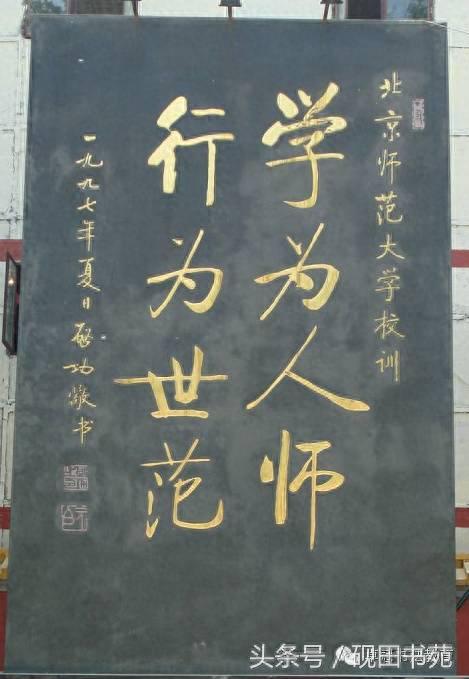 北京师范大学校训
学为人师
行为世范
一九九七年夏日启功敬书
头条号／砚田书苑